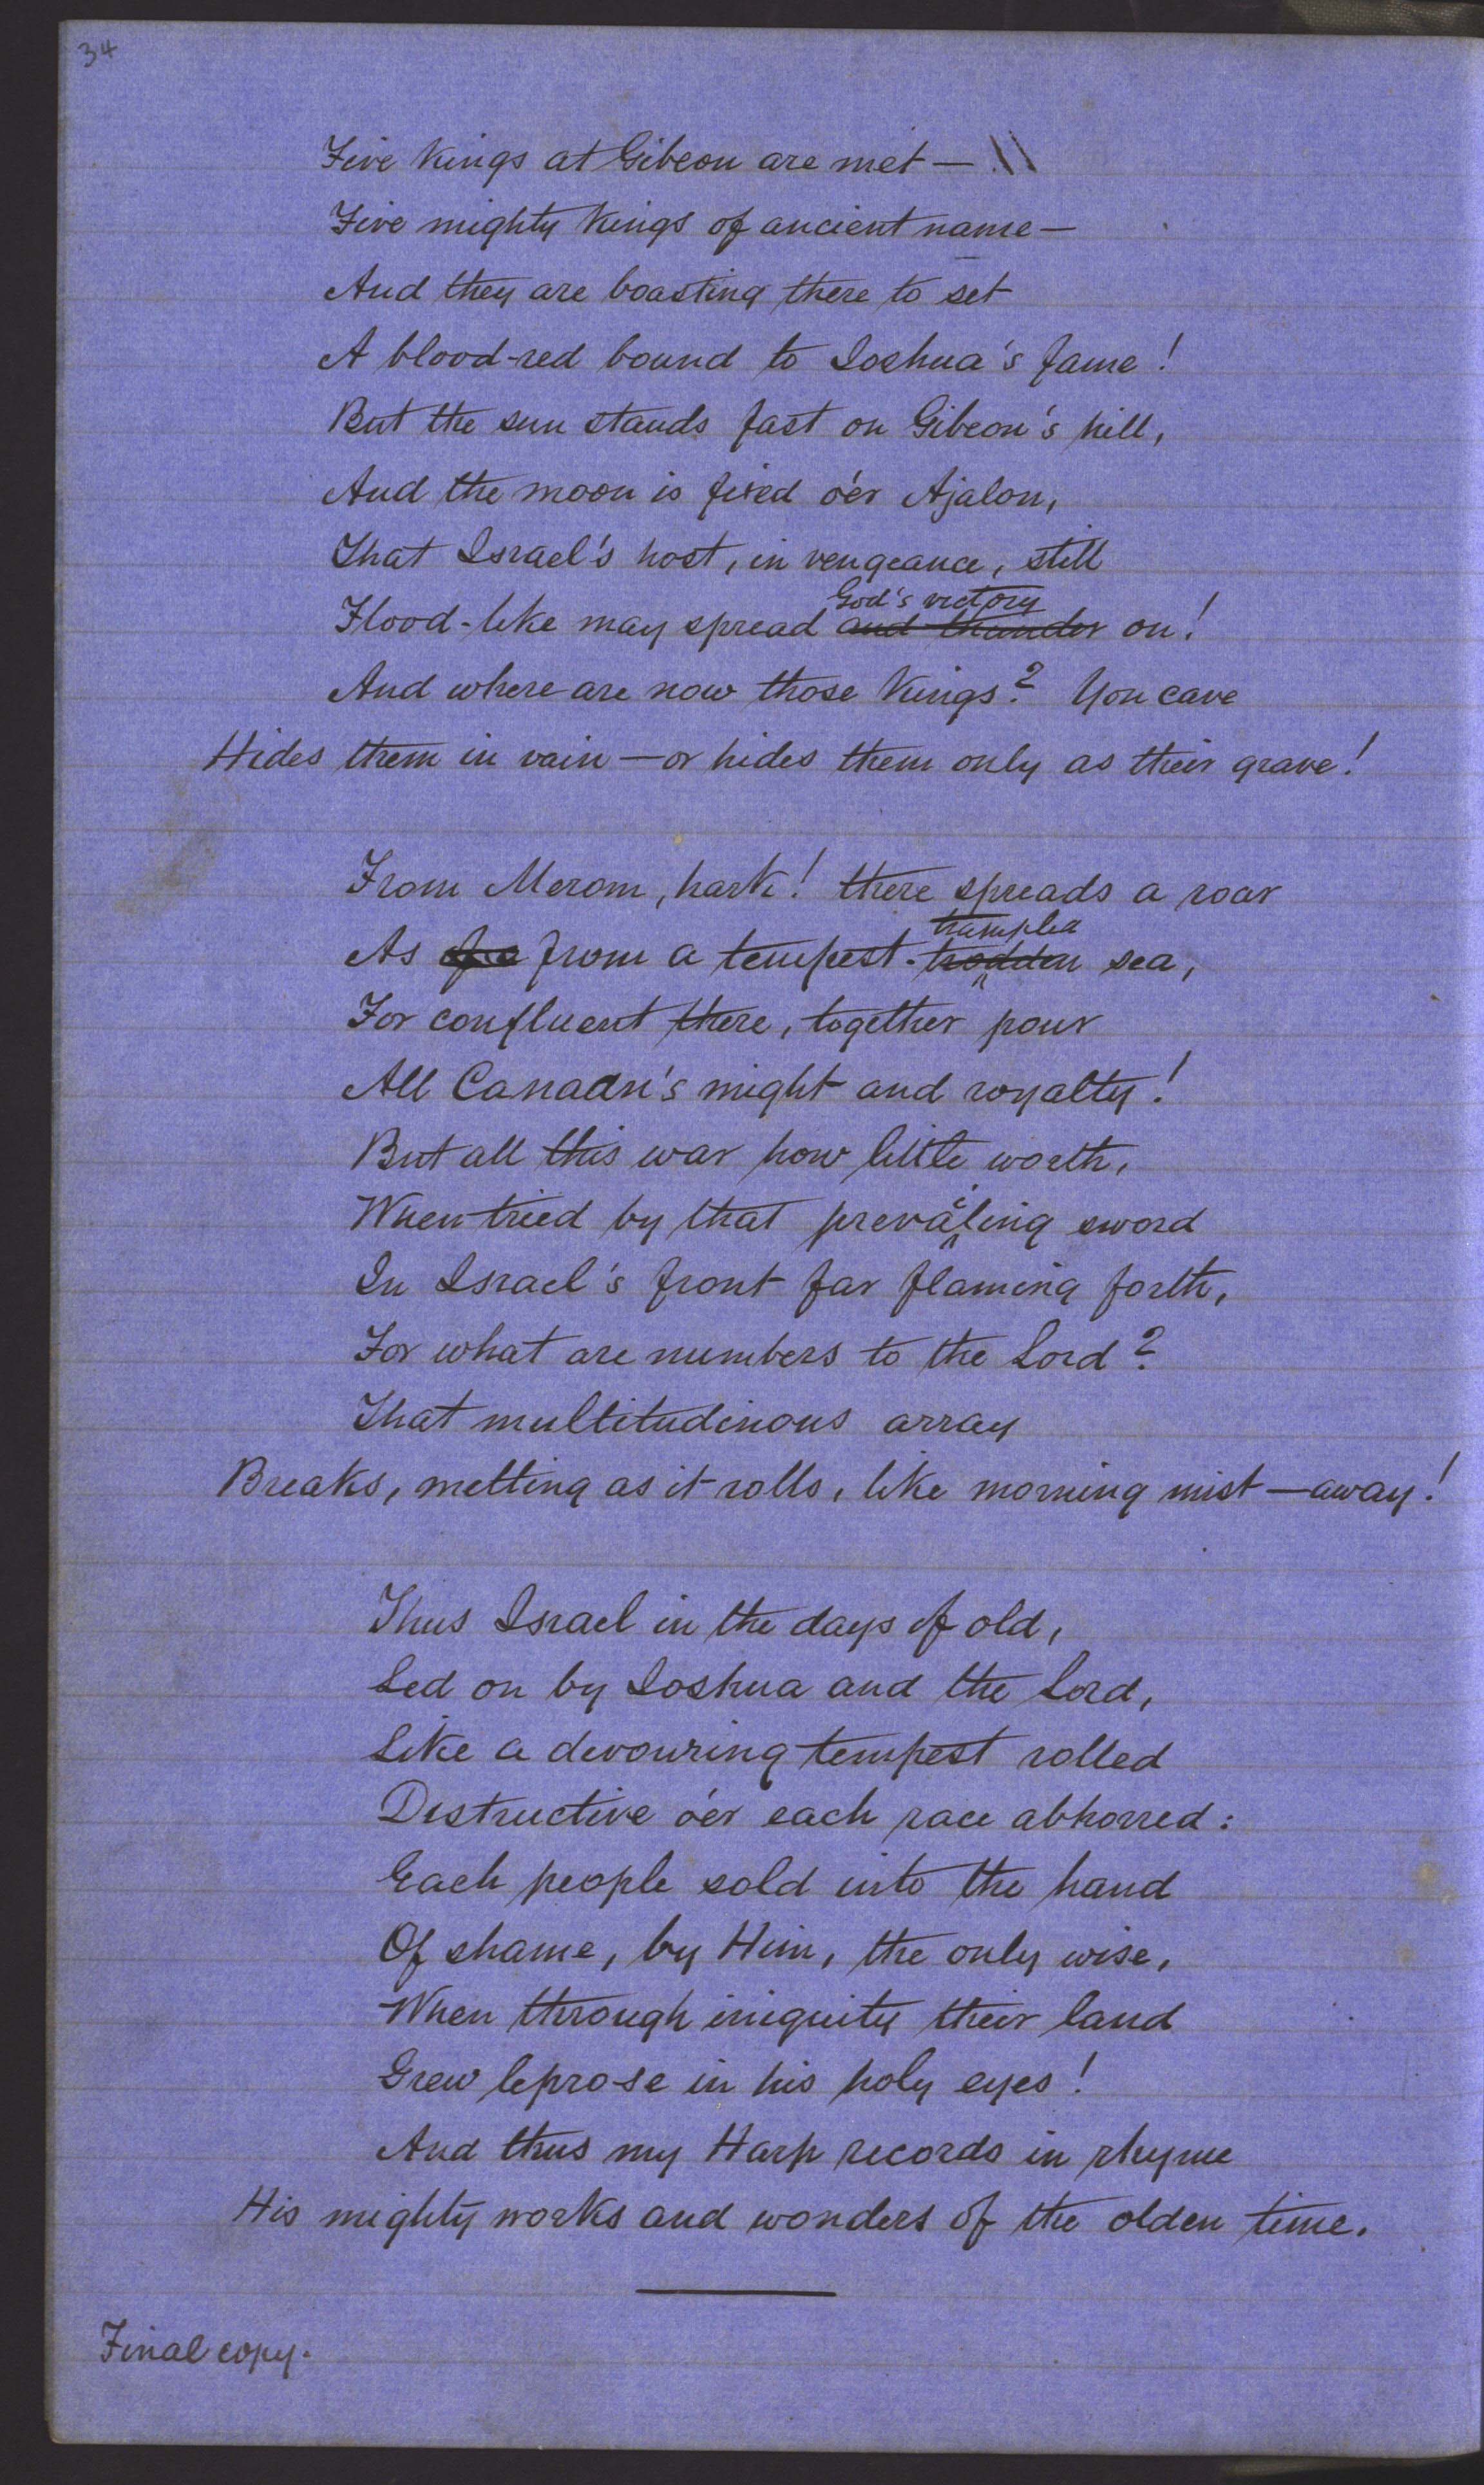 34
Five Kings at Gibeon are met —
Five mighty Kings of ancient name —
And they are boasting there to set
A blood-red bound to Joshua's fame!
But the sun stands fast on Gibeon's hill,
And the moon is fixed o'er Ajalon,
That Israel's host, in vengeance, still
God's victory
Flood-like may spread and thunder on!
And where are now those Kings? Yon cave
Hides them in vain — or hides them only as their grave!
From Merom, hark! there spreads a roar
trampled
As from a tempest-trodden sea,
For confluent there, together pour
All Canaan's might and royalty!
But all this war how little worth,
When tried by that prevailing sword
In Israel's front far flaming forth,
For what are numbers to the Lord?
That multitudinous array
Breaks, melting as it rolls, like morning mist — away!
Thus Israel in the days of old,
Led on by Joshua and the Lord,
Like a devouring tempest rolled
Destructive o'er each race abhorred:
Each people sold into the hand
Of shame, by Him, the only wise,
When through iniquity their land
Grew leprose in his holy eyes!
And thus my Harp records in rhyme
His mighty works and wonders of the olden time.
Final copy.